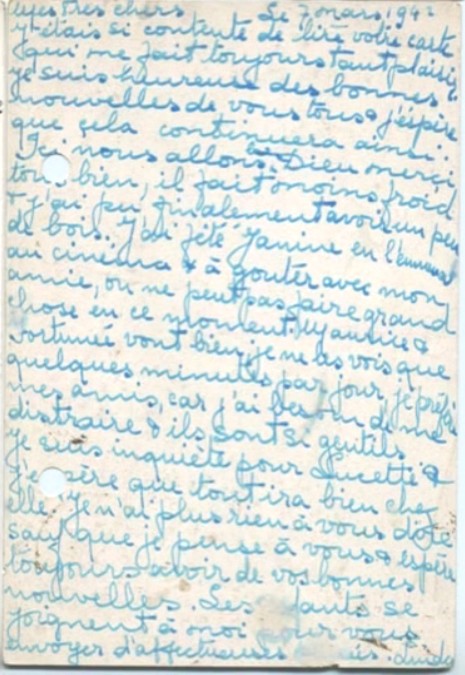 mes très chers Le 7 mars 1942
J'étais si contente de lire votre carte
qui me fait toujours tant plaisir
je suis heureuse des bonnes
nouvelles de vous tous & j'espère
que cela continuera ainsi.
Ici nous allons, Dieu merci,
tous bien, il fait moins froid
& j'ai pu finalement avoir un peu
de bois. J'ai fêté Janine en l'emmenant
au cinéma & à goûter avec mon
amie, on ne peut pas faire grand
chose en ce moment. Maurice &
fortunée vont bien, je ne les vois que
quelques minutes par jour, je préfère
mes amis, car j'ai besoin de me
distraire & ils sont si gentils.
je suis inquiète pour Lucette &
j'espère que tout ira bien chez
elle. Je n'ai plus rien à vous dire
sauf que je pense à vous & espère
toujours avoir de vos bonnes
nouvelles. Les se
joignent à moi pour vous
envoyer d'affectueuses